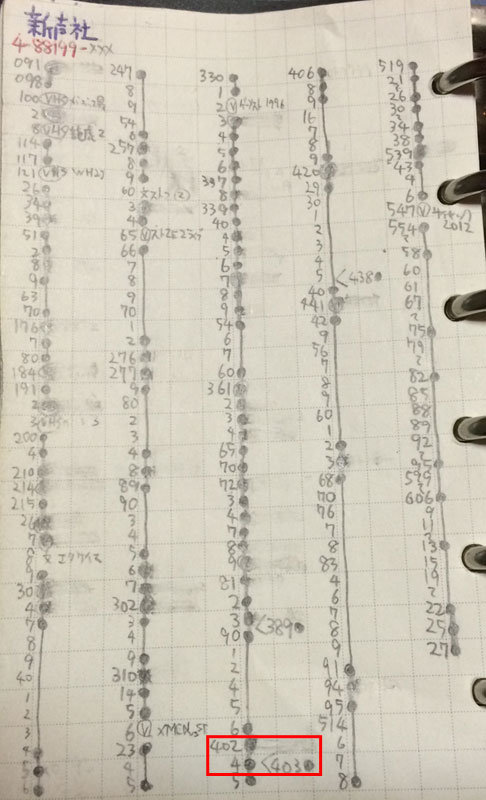 新声社
4-88199-xxx
091
098
100 (V)
2
8 (V)HS 2
114
117
121 (V)HS WH2)
26
34
39
51
2
8
9
63
70
176
7
80
184
191
2
3
200
4
210
214
215
26
7
8
9
30
4
7
8
9
40
1
2
3
4
5
6
247
8
9
54
6
257
8
9
60
3
4
65 (V)
66
7
8
9
70
1
2
276
277
9
80
2
3
4
8
89
90
3
4
5
6
7
302
3
4
9
310
14
5
6 (V) XMCNパST
23
4
5
330
1
2 (V) 1996
3
4
5
6
397
8
339
40
4
5
6
7
8
9
54
6
7
60
361
2
3
4
65
70
72
3
4
7
8
9
81
2
3 <389
90
1
2
4
5
6
402
4 <403
5
406
8
9
16
7
8
9
420
29
30
1
2
3
4
5 <438
40
441
42
9
56
7
8
9
60
1
2
3
68
70
76
7
8
83
4
6
7
8
9
91
94
95
514
6
7
8
519
21
26
30
34
38
539
43
4
6
547 (V)
2012
554
58
60
61
67
75
79
82
85
88
89
92
95
599
606
9
11
13
15
19
22
25
27